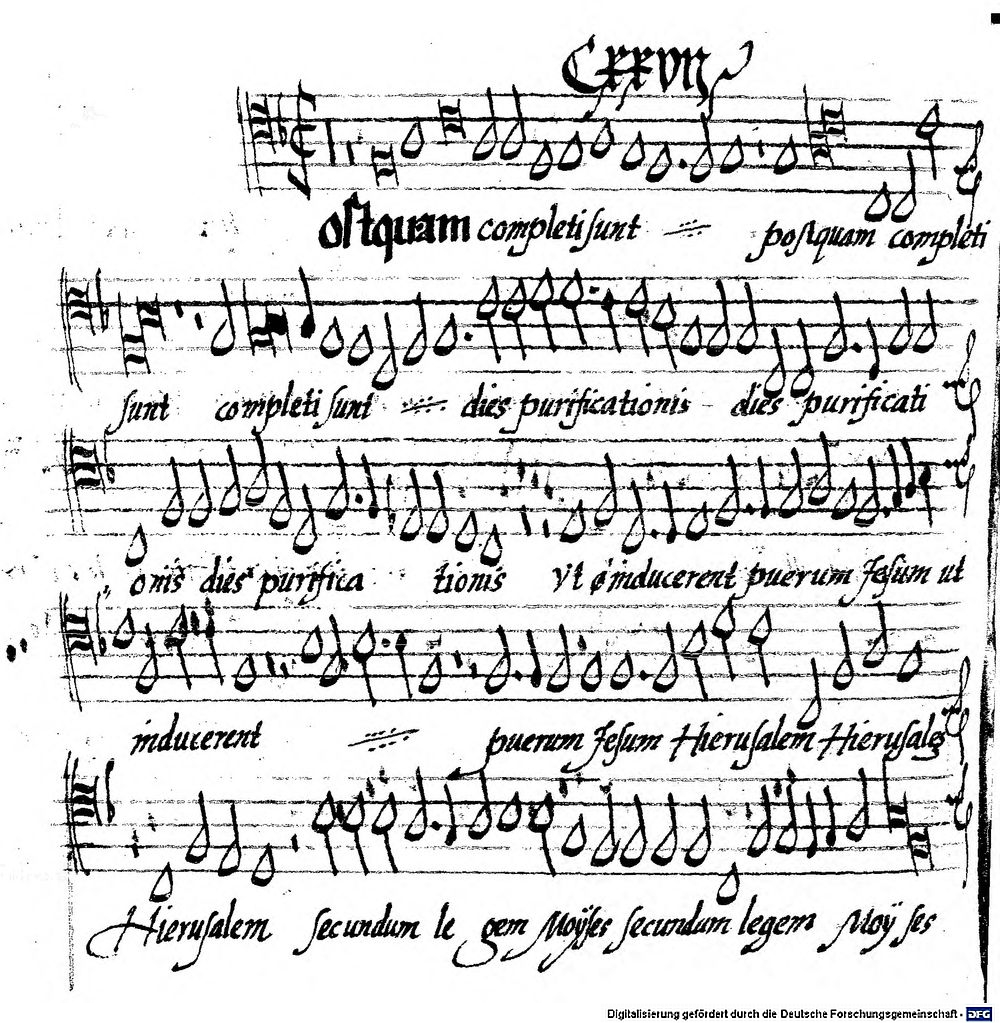 CXXVII
ostquam completi sunt postquam completi
sunt completi sunt dies purificationis dies purificati
onis dies purifica tionis vt inducerent puerum Jesum ut
inducerent puerum Jesum Hierusalem Hierusalē
Hierusalem secundum le gem Moÿses secundum legem Moÿ ses
Digitalisierung gefördert durch die Deutsche Forschungsgemeinschaft - DFG